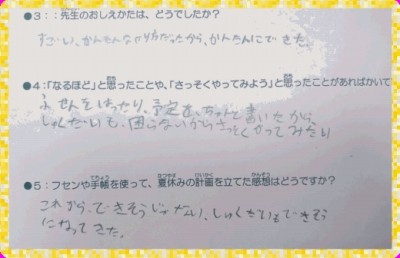 ●3：：先生のおしえかたは、どうでしたか？
すごい、かんたんなやり方だったから、かんたんにできた。
●4：「なるほど」と思ったことや、「さっそくやってみよう」と思ったことがあればかいて
ふせんをはったり、予定を、ちゃんと書いたから、
しゅくだいも、困らないからさっそくやってみたい
●5：フセンや手帳を使って、夏休みの計画を立てた感想はどうですか？
これから、できそうじゃない、しゅくだいもできそう
になってきた。